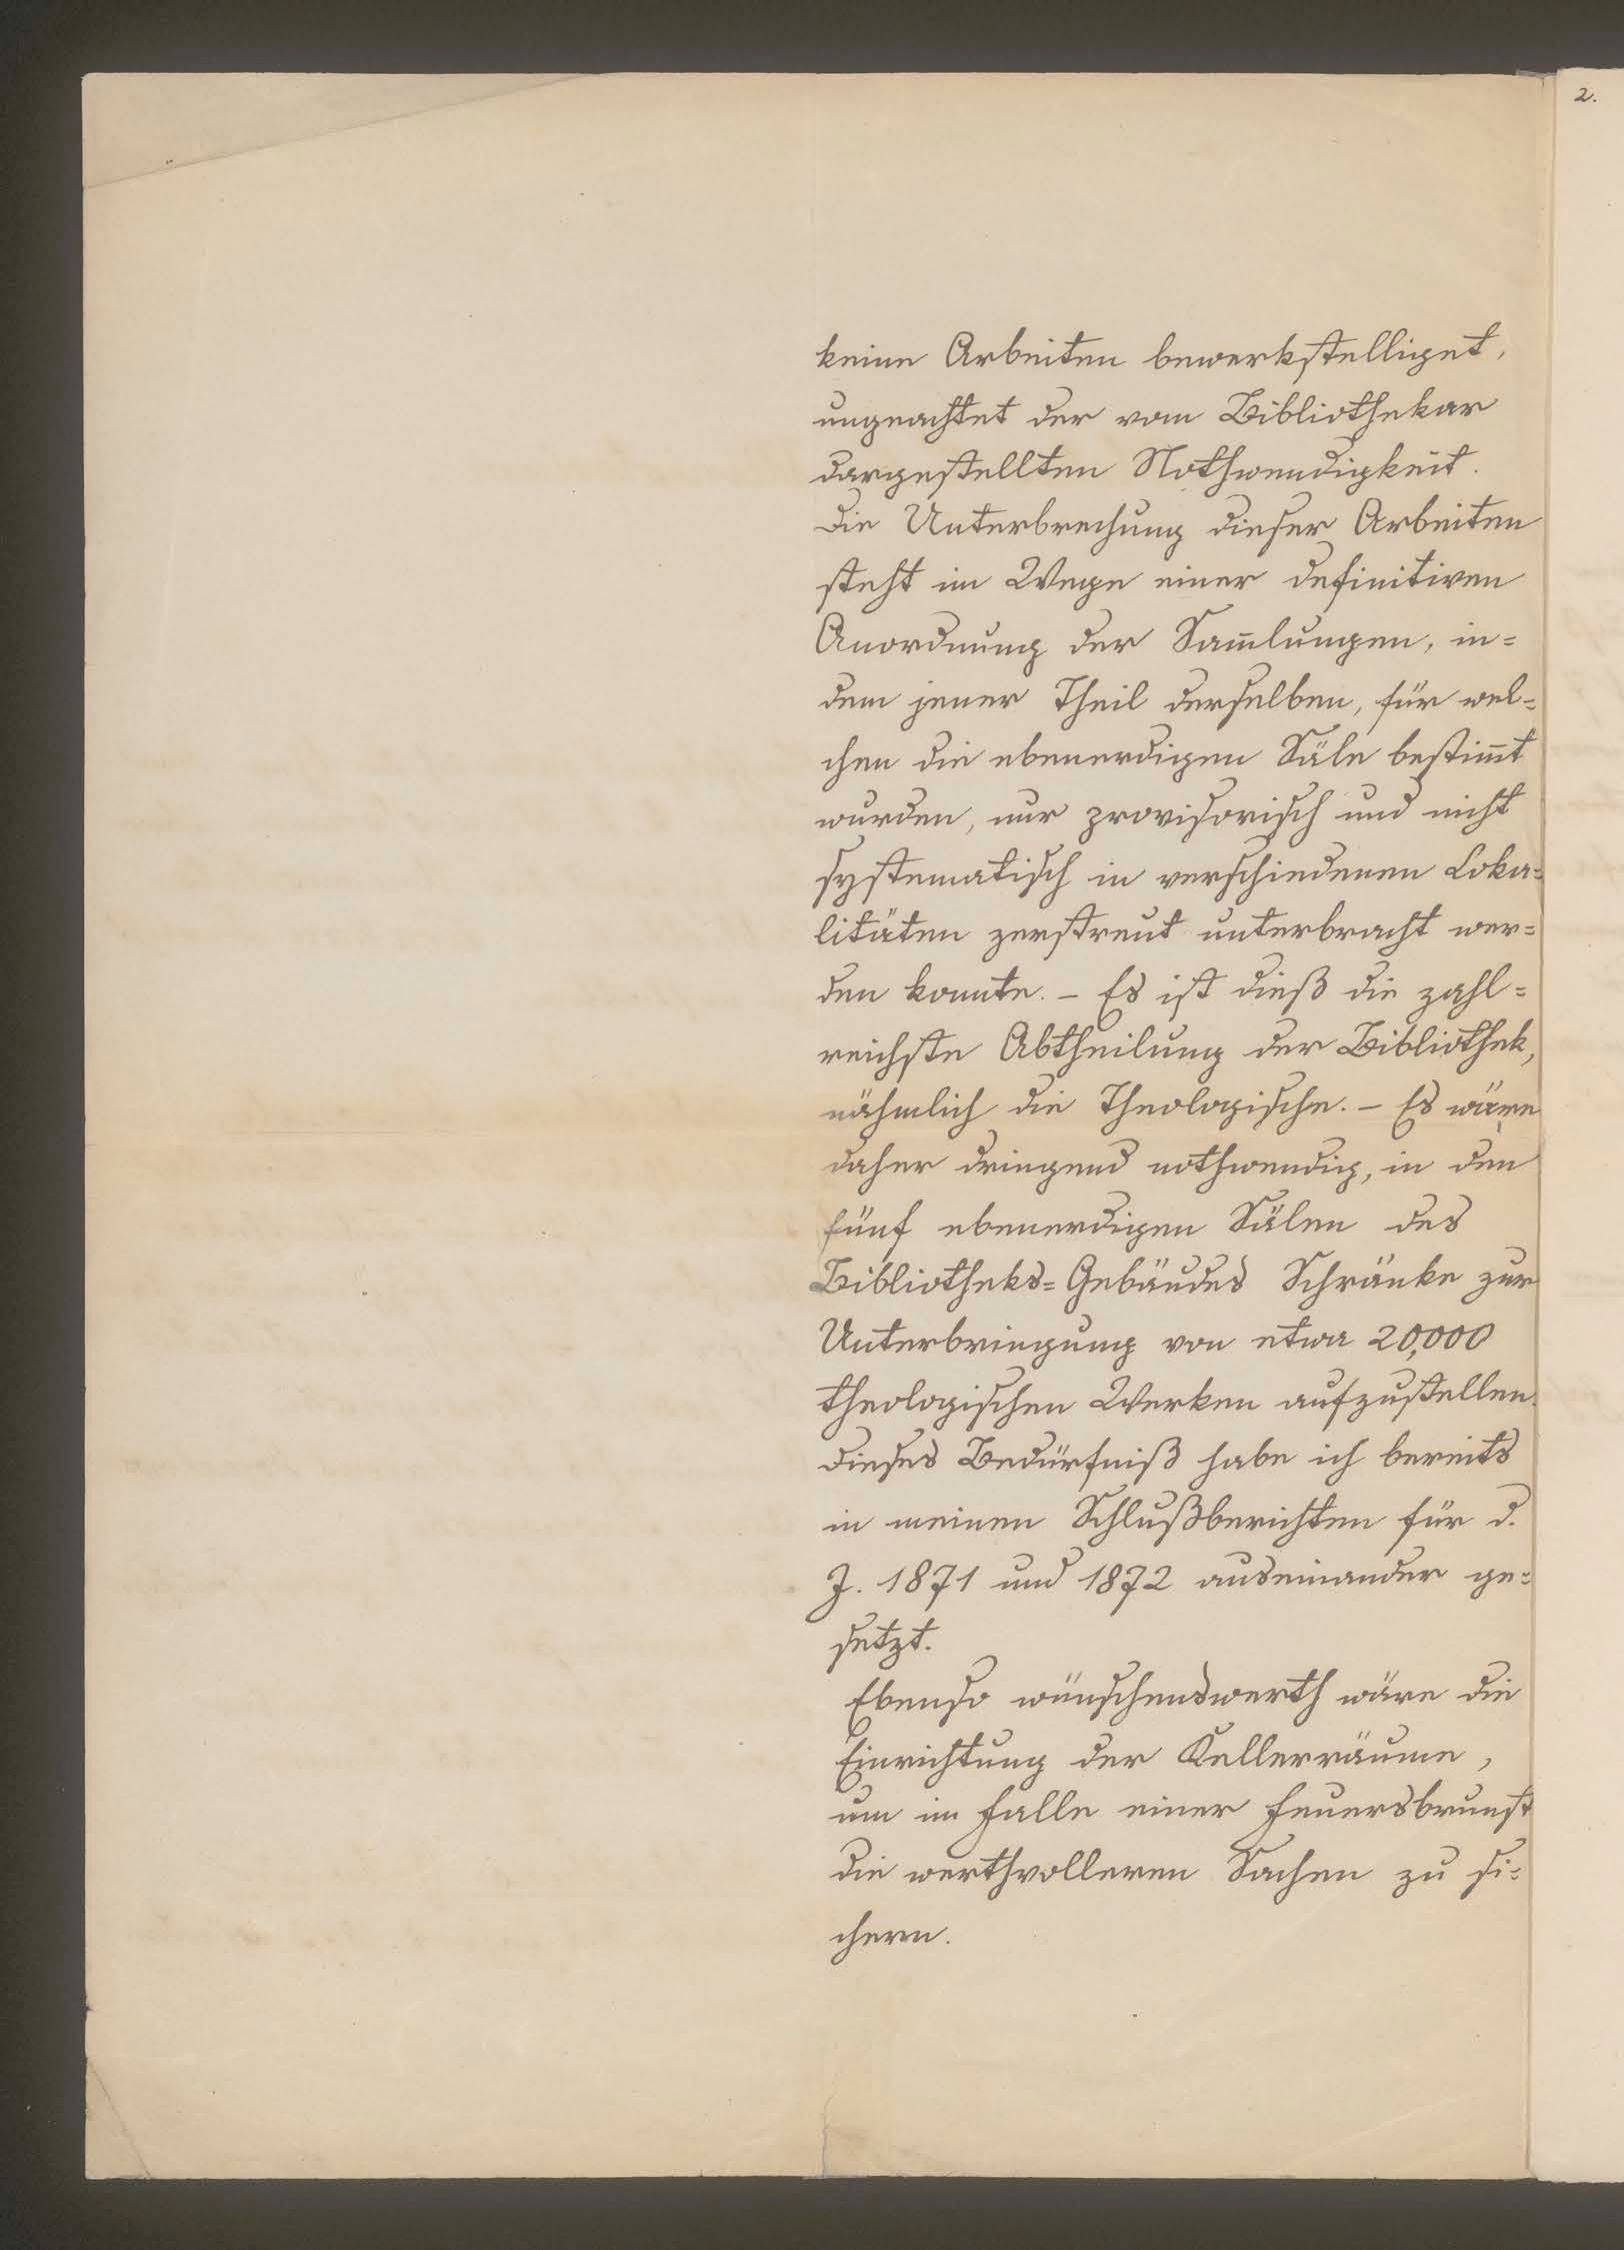 2.
keine Arbeiten bewerkstelliget,
ungeachtet der vom Bibliothekar
dargestellten Nothwendigkeit.
Die Unterbrechung dieser Arbeiten
steht im Wege einer definitiven
Anordnung der Sam̄lungen, in=
dem jener Theil derselben, für wel=
chen die ebenerdigen Säle bestim̄t
wurden, nur provisorisch und nicht
systematisch in verschiedenen Loka=
litäten zerstreut unterbracht wer=
den konnte. – Es ist dieß die zahl=
reichste Abtheilung der Bibliothek,
nähmlich die Theologische. – Es wäre
daher dringend nothwendig, in den
fünf ebenerdigen Sälen des
Bibliotheks=Gebäudes Schränke zur
Unterbringung von etwa 20,000
theologischen Werken aufzustellen.
Dieses Bedürfniß habe ich bereits
in meinen Schlußberichten für d.
J. 1871 und 1872 auseinander ge=
setzt.
Ebenso wünschenswerth wäre die
Einrichtung der Kellerräume,
um im Falle einer Feuersbrunst
die werthvolleren Sachen zu si=
chern.